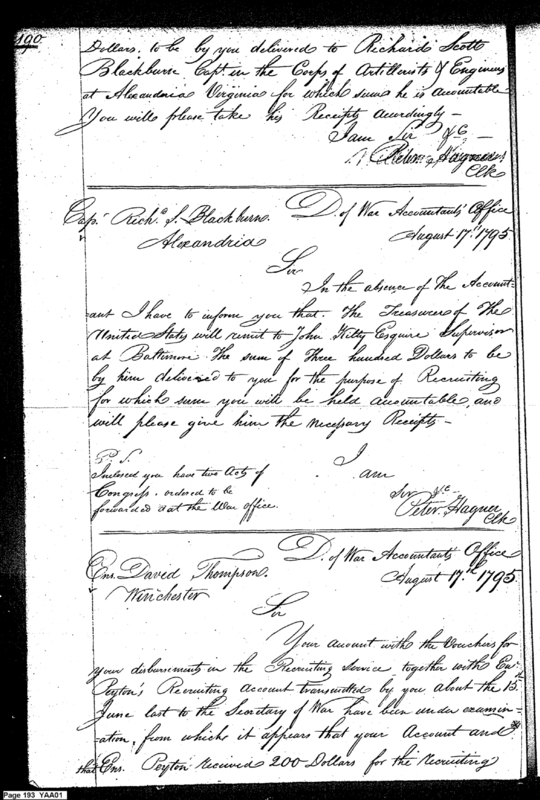 190
Dollars. to be by you delivered to Richard Scott
Blackburn Capt. in the Corps of Artillerists & Engineers
at Alexandria Virginia for which sum he is accountable
You will please take his Receipts accordingly –
I am Sir &c. –
Peter Hagner
Clk
Capt. Richd. S. Blackburn
Alexandria
D. of War Accountants Office
August 17th. 1795
Sir
In the absence of The Account-
ant I have to inform you that. The Treasurer of The
United States will remit to John Kilty Esquire Supervisor
at Baltimore The sum of Three hundred Dollars to be
by him delivered to you for the purpose of Recruiting
for which sum you will be held accountable, and
will please give him the necessary Receipts –
P. S.
Inclosed you have two Acts of
Congress. ordered to be
forwarded at the War office.
I am
Sir &c.
Peter Hagner
Clk
Ens. David Thompson.
Winchester
D. of War Accountants Office
August 17th. 1795.
Sir
Your account with the Vouchers for
your disbursements in the Recruiting Service together with Ens.
Peyton's Recruiting Account transmitted by you about the 15th
June last to the Secretary of War have been under examin-
ation, from which it appears that your Account and
that Ens. Peyton received 200 Dollars for the Recruiting
Page 193 YAA01